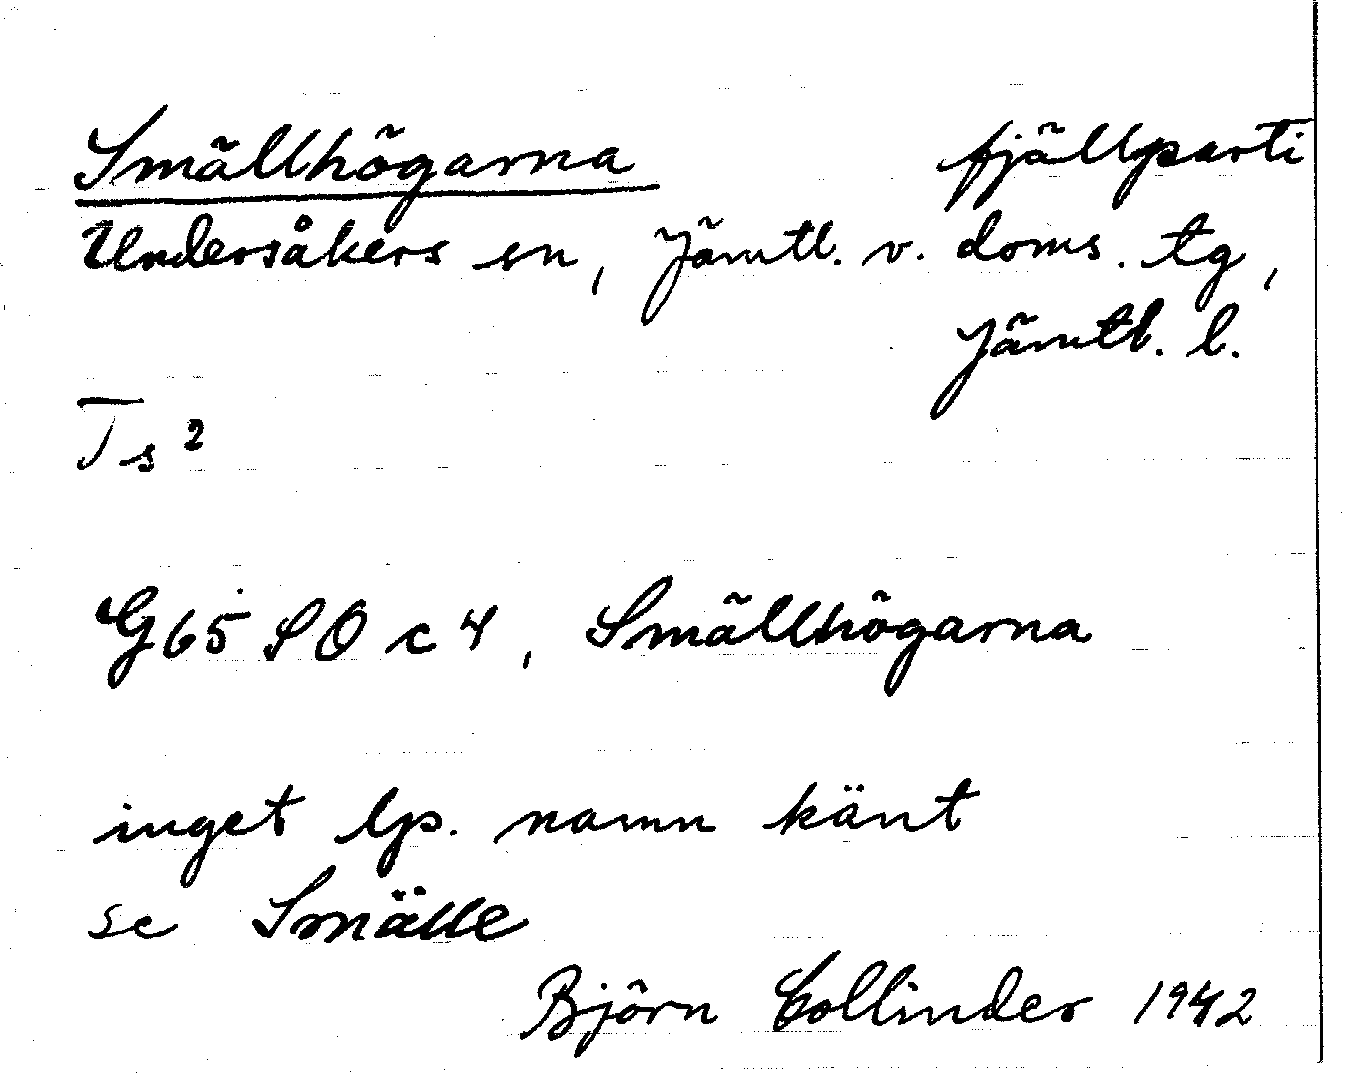 Smällhögarna fjällparti
Undersåkers sn, Jämtl. v. doms. tg,
Jämtl. l.
Ts²
G65 SO c 4, Smällhögarna
inget lp. namn känt
se Smälle
Björn Collinder 1942